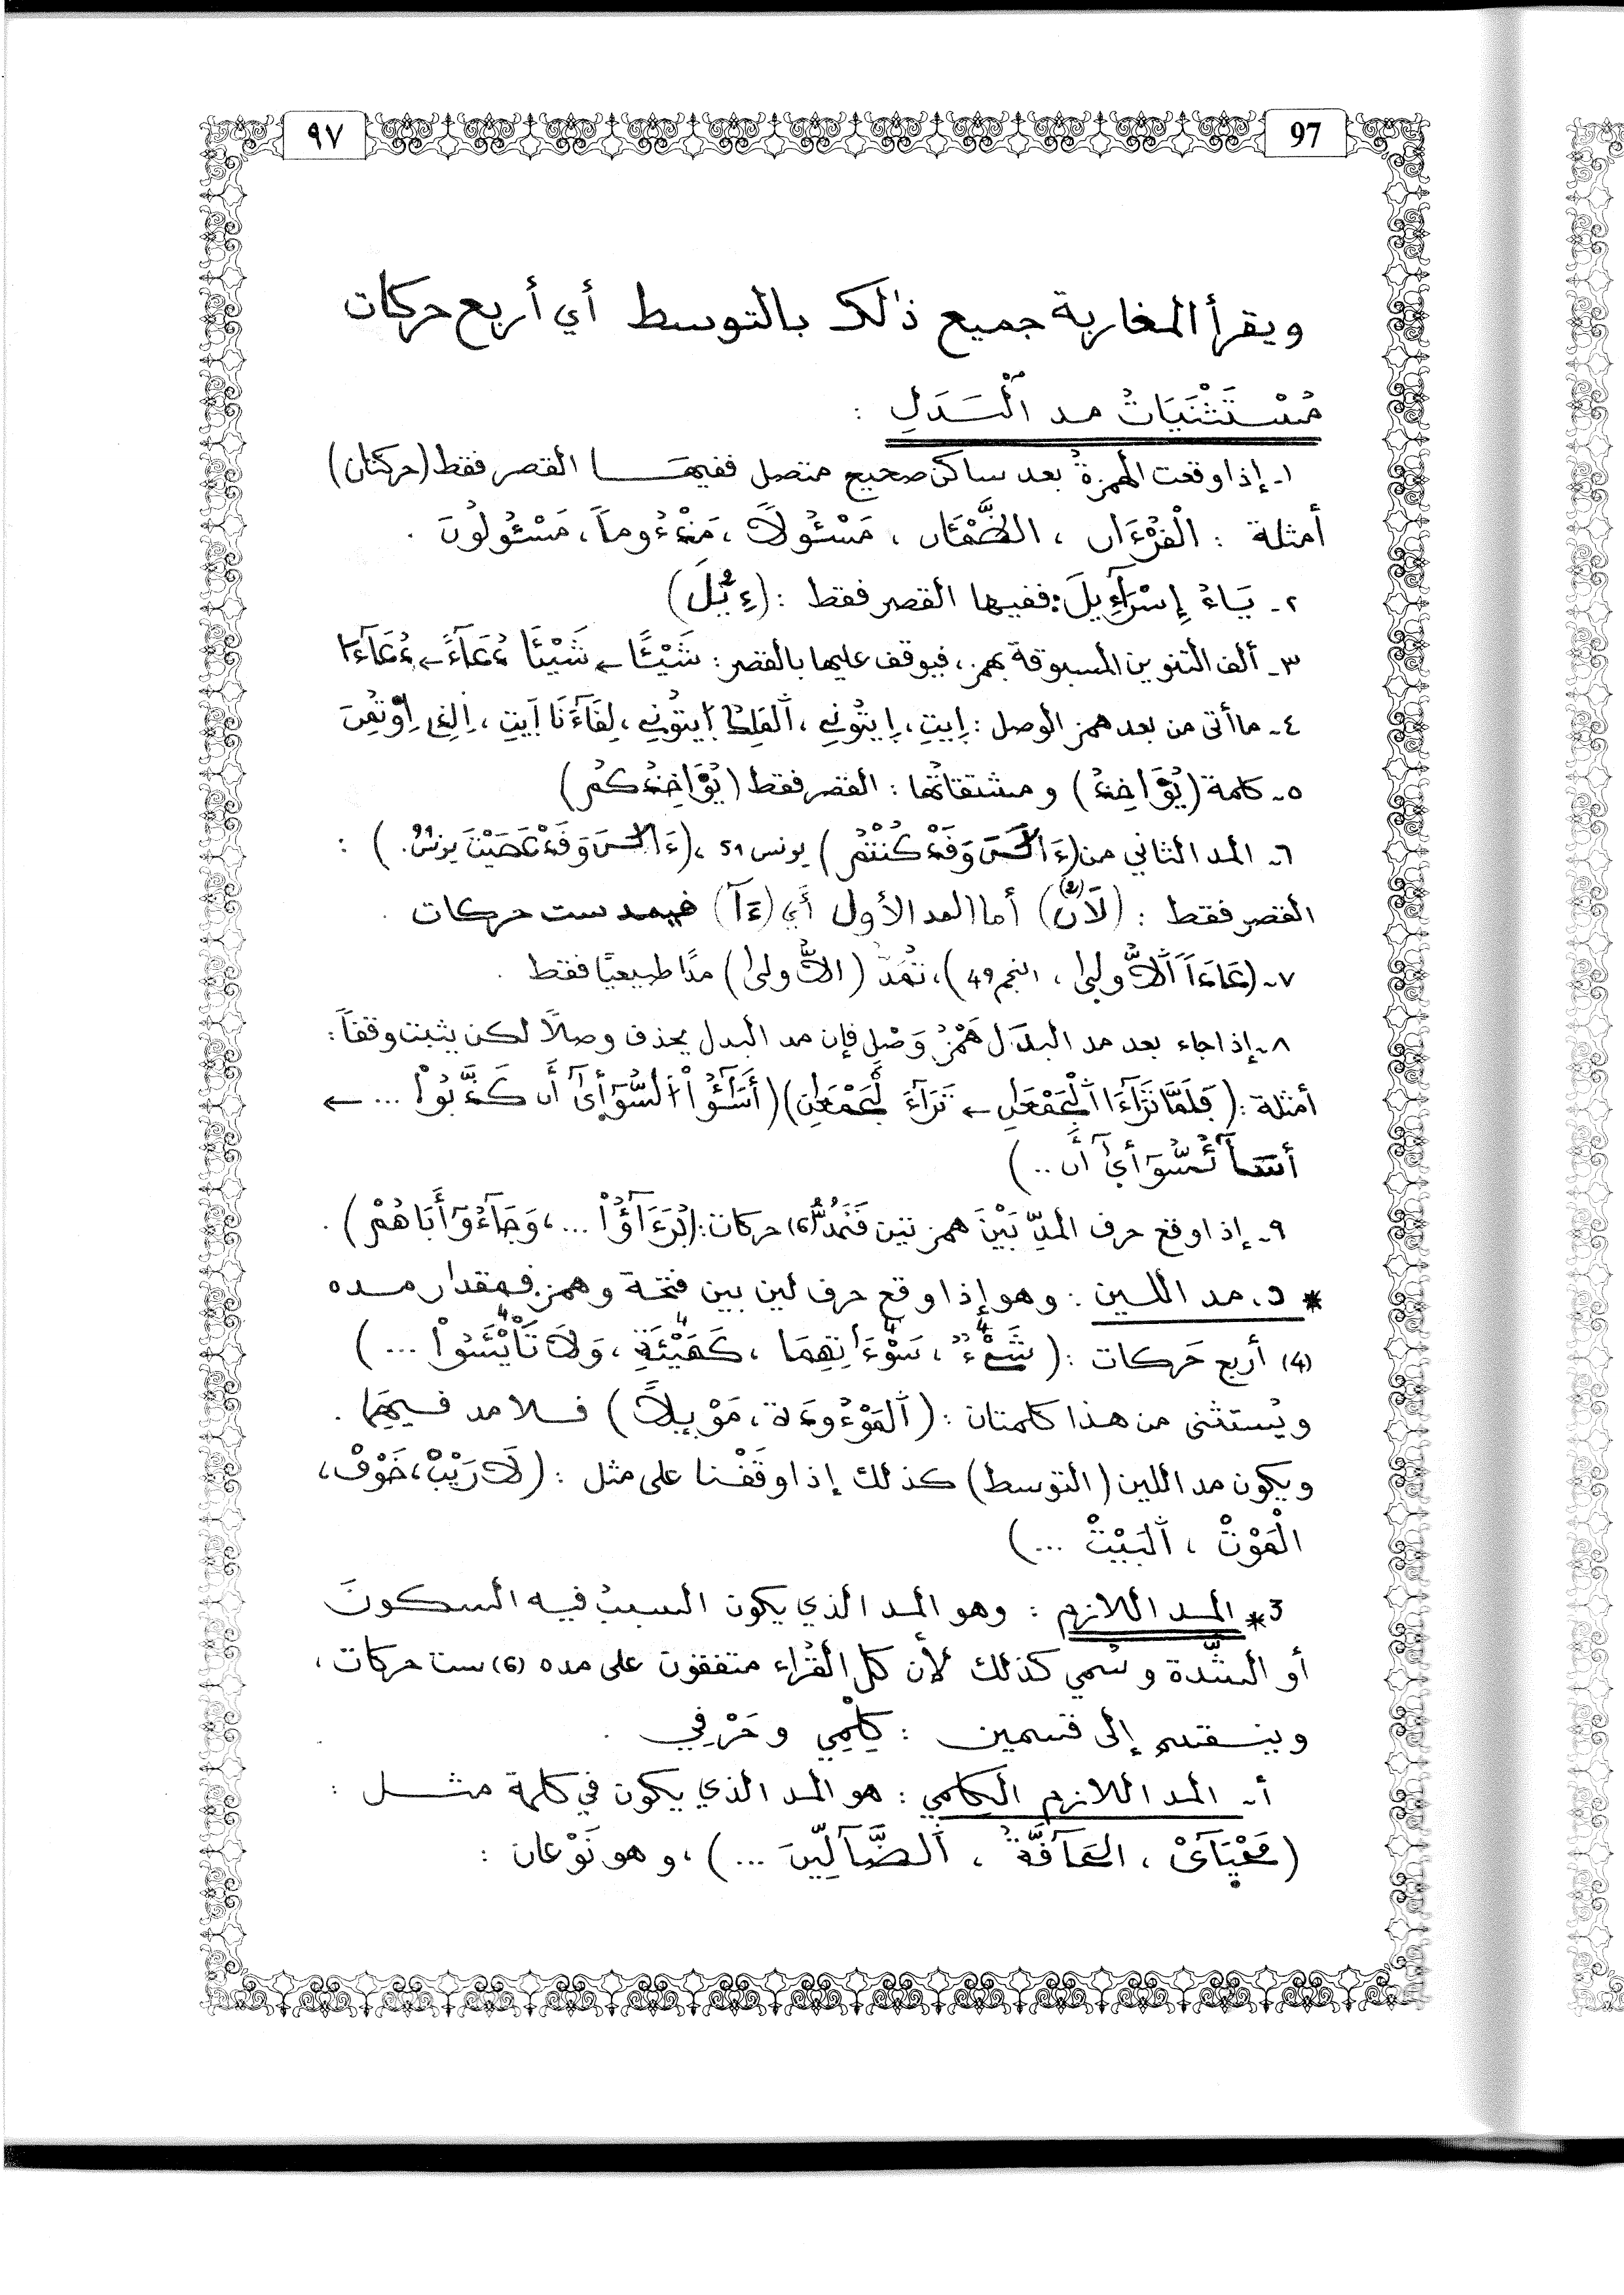 97
٩٧
ويقرأ المغاربة جميع ذالك بالتوسط أي أربع حركات
مُسْتَثْنَيَاتُ مد الْبَدَلِ :
١- إذا وقعت الهمزةُ بعد ساكن صحيح متصل ففيها القصر فقط (حركتان)
أمثلة : الْقُرْءَان ، الظَّمْـَٔان ، مَسْـُٔولًا ، مَذْءُوماً ، مَسْـُٔولُونَ .
٢- يَاءُ إِسْرَآءِيلَ : ففيها القصر فقط : (ءِيلَ)
٣- ألف التنوين المسبوقة بهمز ، فيوقف عليها بالقصر : شَيْـًٔا ← شَيْـَٔا دُعَآءً ← دُعَآءَا
٤- ما أتى من بعد همز الوصل : إِيتِ ، إِيتُونِي ، ٱلْمَلِكُ ٱيتُونِي ، لِقَآءَنَا ٱيتِ ، ٱلذِي ٱوتُمِنَ
٥- كلمة (يُوَاخِذُ) ومشتقاتُها : القصر فقط (يُوَاخِذُكُمُ)
٦- المد الثاني من (ءَآلَٰنَ وَقَدْ كُنْتُمْ) يونس 51 ، (ءَآلَٰنَ وَقَدْ عَصَيْتَ يونس 91) :
القصر فقط : (لَانَ) (2) أما المد الأول أي (ءَآ) فيمد ست حركات .
٧- (عَاداً ٱلُّاولىٰ ، النجم 49) ، تُمَدُّ (الُّاولىٰ) مدًّا طبيعيًا فقط .
٨- إذا جاء بعد مد البدَل هَمْزُ وَصْلٍ فإن مد البدل يحذف وصلاً لكن يثبت وقفاً :
أمثلة : (فَلَمَّا تَرَٰٓءَا ٱلْجَمْعَٰنِ ← تَرَآءَ لْجَمْعَٰنِ) (أَسَٰٓـُٔوا۟ ٱلسُّوٓأَىٰٓ أَن كَذَّبُوا۟ ... ←
أَسَآـُٔسُّوٓأَىٰٓ أَن ..)
٩- إذا وقع حرف المدِّ بَيْنَ همزتين فَنَمُدُّهُ (6) حركات : (بُرَءَٰٓؤُا۟ ... ، وَجَآءُوٓ أَبَاهُمْ) .
* د. مد اللين : وهو إذا وقع حرف لين بين فتحة وهمز فمقدار مده
(4) أربع حَركات : (شَيْءٌ ، سَوْءَٰتِهِمَا ، كَهَيْـَٔةِ ، وَلَا تَا۟يْـَٔسُوا۟ ...)
ويُستثنى من هذا كلمتان : (ٱلْمَوْءُودَة ، مَوْئِلًا) فلا مد فيهِمَا .
ويكون مد اللين (التوسط) كذلك إذا وقَفْنا على مثل : (لَا رَيْبْ ، خَوْفْ ،
الْمَوْتْ ، ٱلْبَيْتْ ...)
3* المد اللازم : وهو المد الذي يكون السببُ فيه السكونَ
أو الشَّدة وسُمي كذلك لأن كل القُراء متفقون على مده (6) ست حركات ،
وينقسم إلى قسمين : كِلْمِي وحَرْفِي .
أ- المد اللازم الكلمي : هو المد الذي يكون في كلمة مثل :
(مَحْيَآىْ ، الحَآقَّةُ ، ٱلضَّآلِّينَ ...) ، وهو نَوْعان :